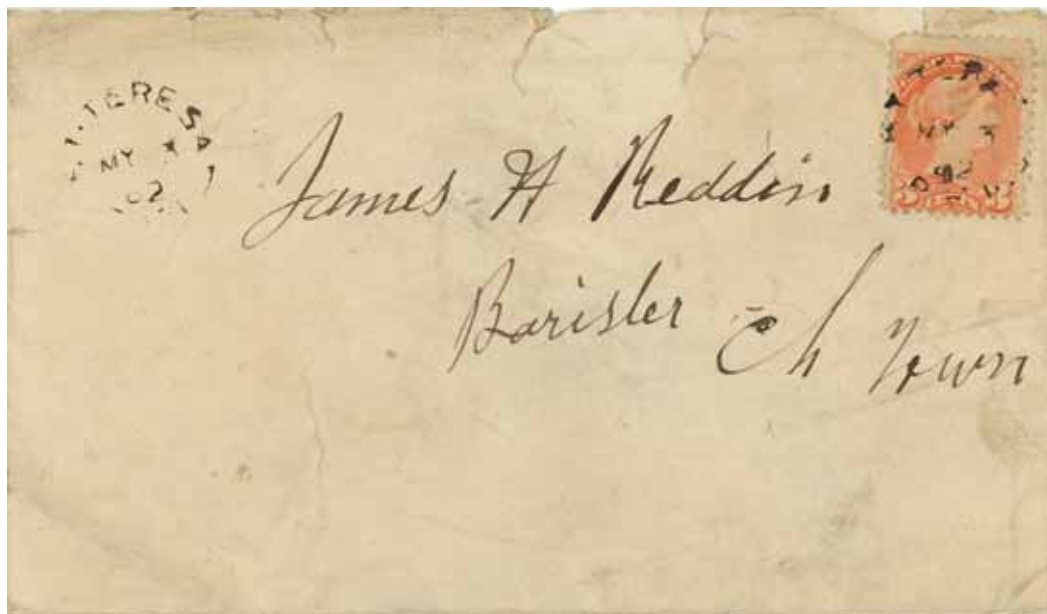 ST. TERESA
MY 3
92
James H Reddin
Barister
Ch Town
MY 3
92